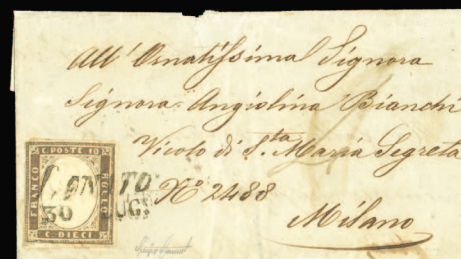 All' Ornatissima Signora
Signora Angiolina Bianchi
Vicolo di S.ta Maria Segreta
N° 2488
Milano
C. POSTE 10
FRANCO
BOLLO
C. DIECI
30 LUG